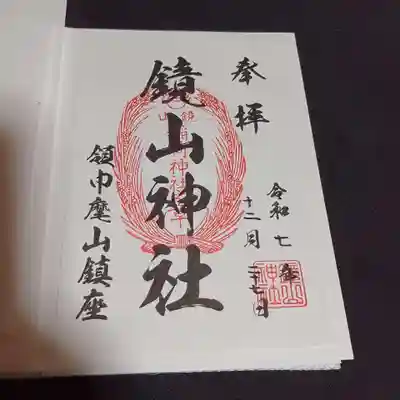 奉拝
令和七
十二月
二十七日
鏡山神社
領巾麾山鎮座